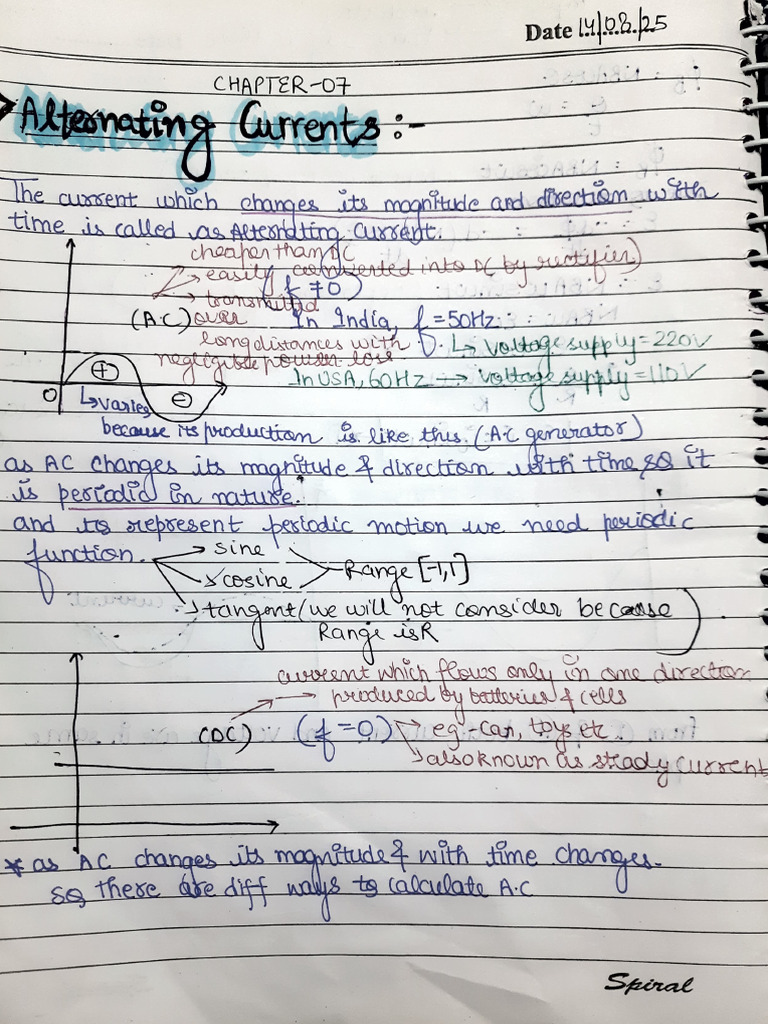 Date 14/08/25
CHAPTER-07
Alternating Currents :-
The current which changes its magnitude and direction with
time is called as Alternating Current.
cheaper than DC
→ easily converted into DC by rectifier)
(f ≠ 0)
→ transmitted
(A.C) over In India, f = 50Hz
long distances with ↳ voltage supply = 220V
negligible power loss
In USA, 60Hz → voltage supply = 110V
+
O ↳ varies
because its production is like this. (A.C generator)
as AC changes its magnitude & direction with time so it
is periodic in nature.
and to represent periodic motion we need periodic
function. → sine
→ cosine Range [-1,1]
→ tangent (we will not consider because
Range is R)
current which flows only in one direction
→ produced by batteries & cells
(DC) (f = 0) → eg - car, toys etc
↳ also known as steady current
* as AC changes its magnitude & with time changes.
so there are diff ways to calculate A.C
Spiral